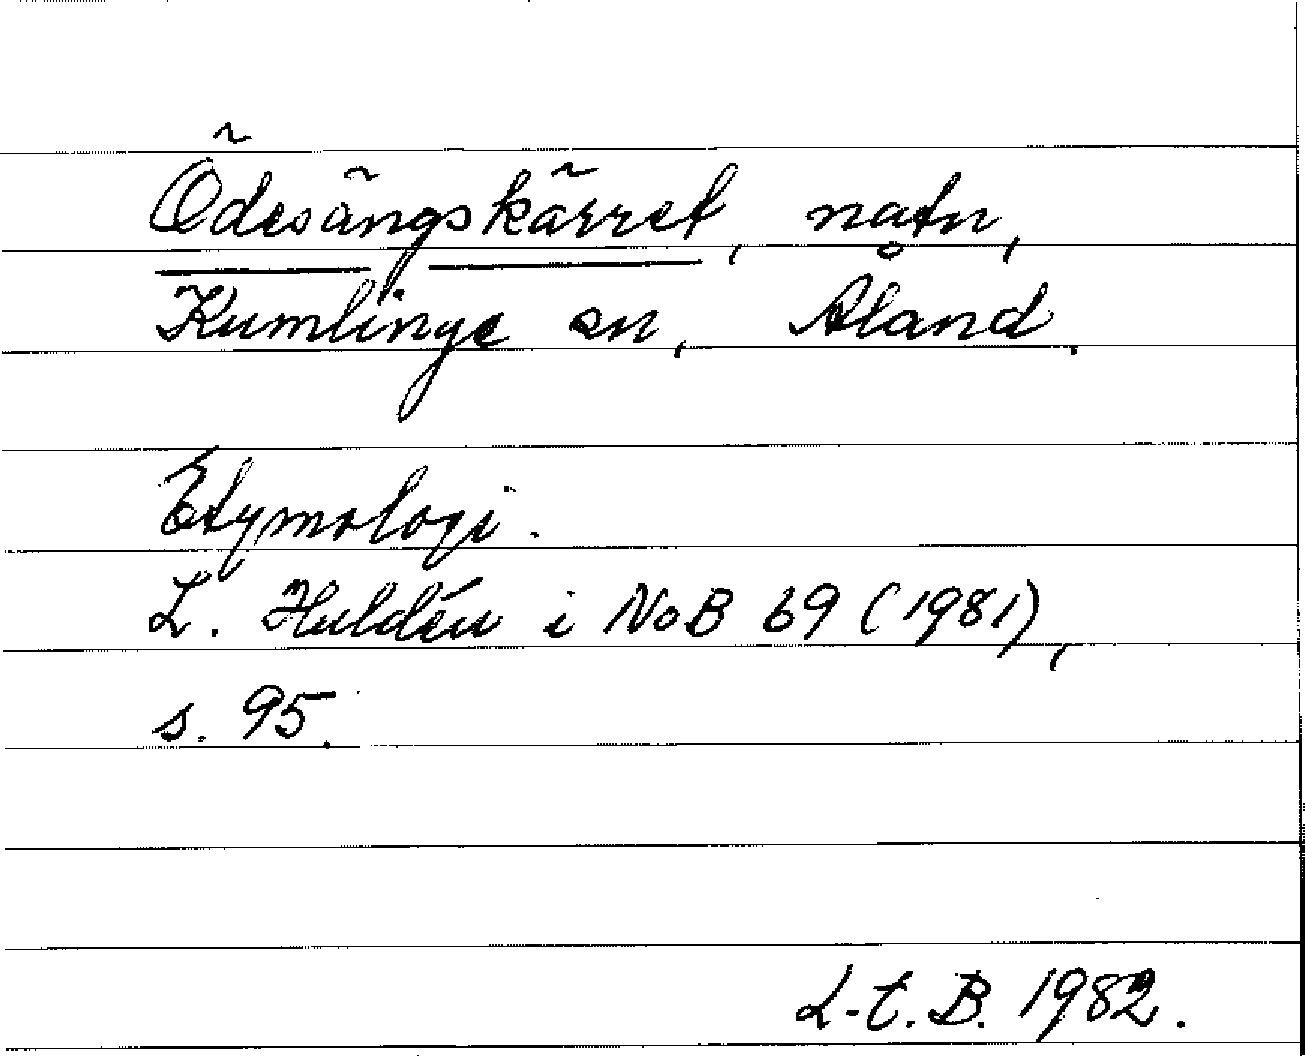 Ödesängskärret, natn,
Kumlinge sn, Åland.
Etymologi.
L. Huldén i NoB 69 (1981),
s. 95.
L-E. B. 1982.